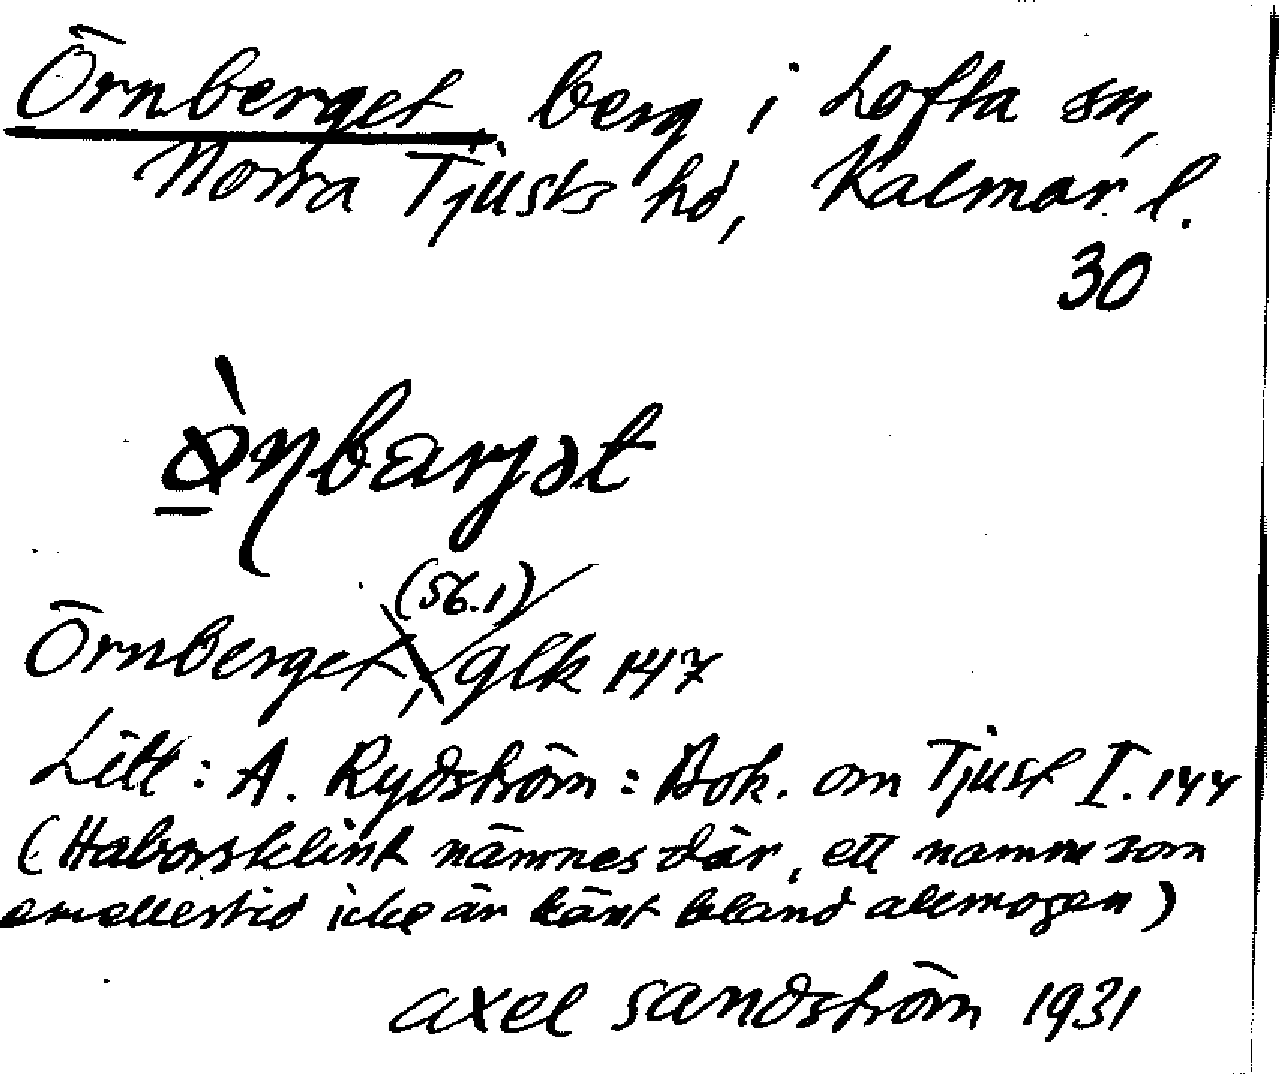 Örnberget berg i Lofta sn,
Norra Tjusts hd, Kalmar l.
30
ø̀ɳbarjət
(56.1)
Örnberget, glk 147
Litt: A. Rydström: Bok. om Tjust I. 144
(Haborsklint nämnes där, ett namn som
emellertid icke är känt bland allmogen)
Axel Sandström 1931